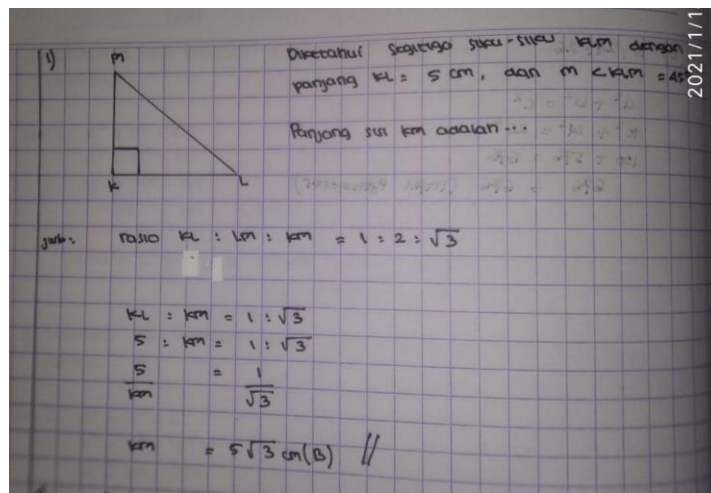 1)
M
Diketahui segitiga siku-siku KLM dengan
panjang KL = 5 cm, dan m < KLM = 45
Panjang sisi KM adalah ...
K
L
Jwb: rasio KL : LM : KM = 1 : 2 : √3
KL : KM = 1 : √3
5 : KM = 1 : √3
5/KM = 1/√3
KM = 5√3 cm (B) //
2021/1/1